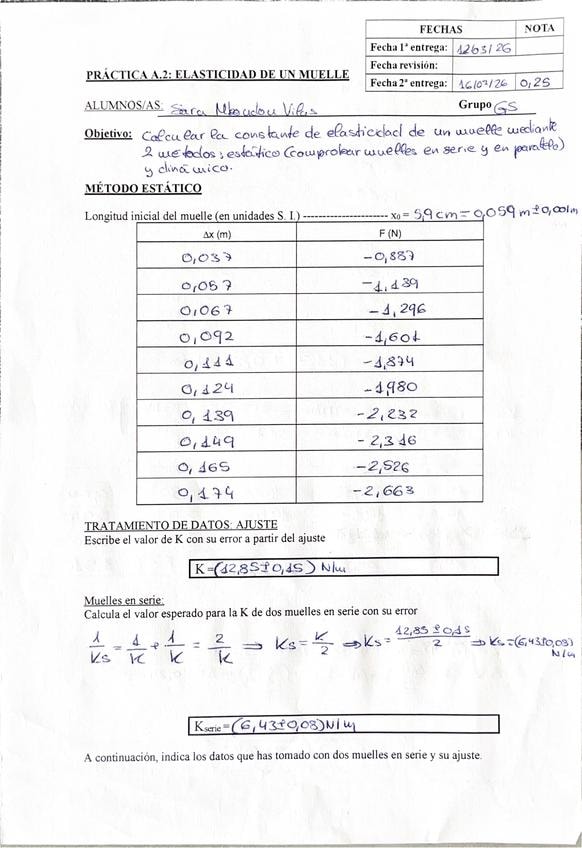 FECHAS NOTA
Fecha 1ª entrega: 12/03/26
Fecha revisión:
Fecha 2ª entrega: 16/03/26 0,25
PRÁCTICA A.2: ELASTICIDAD DE UN MUELLE
ALUMNOS/AS: Sara Grupo G5
Objetivo: Calcular la constante de elasticidad de un muelle mediante
2 métodos: estático (comprobar muelles en serie y en paralelo)
y dinámico.
MÉTODO ESTÁTICO
Longitud inicial del muelle (en unidades S. I.) ---------------------- x₀ = 5,9 cm = 0,059 m ± 0,001m
Δx (m) F (N)
0,037 -0,887
0,057 -1,139
0,067 -1,296
0,092 -1,601
0,111 -1,874
0,124 -1,980
0,139 -2,232
0,149 -2,316
0,165 -2,526
0,174 -2,663
TRATAMIENTO DE DATOS: AJUSTE
Escribe el valor de K con su error a partir del ajuste
K = (12,85 ± 0,15) N/m
Muelles en serie:
Calcula el valor esperado para la K de dos muelles en serie con su error
1/Ks = 1/K + 1/K = 2/K ⇒ Ks = K/2 ⇒ Ks = 12,85 ± 0,15/2 ⇒ Ks = (6,43 ± 0,08)
N/m
Kserie = (6,43 ± 0,08) N/m
A continuación, indica los datos que has tomado con dos muelles en serie y su ajuste.